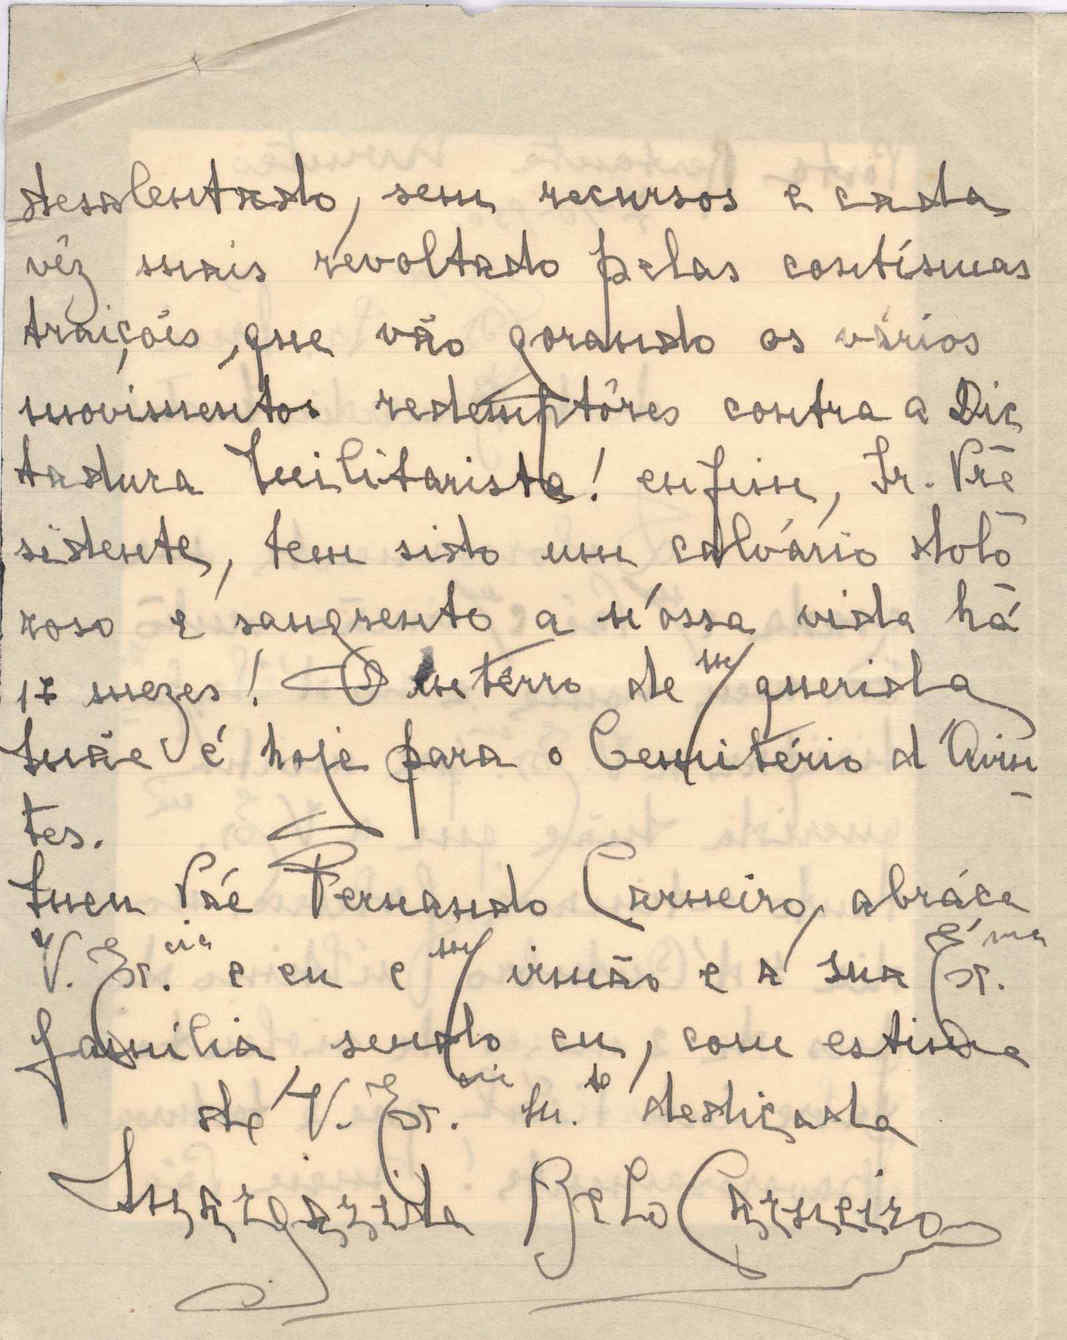 desalentado, sem recursos e cada
vêz mais revoltado pelas contínuas
traições, que vão gorando os vários
movimentos redemptôres contra a Dic
tadura Militarista! enfim, Sr. Pre
sidente, tem sido um calvário dolo
roso e sangrento a nóssa vida há
17 mezes! O enterro de mª querida
Mãe é hoje para o Cemitério d'Avin
tes.
Meu Páe Fernando Carneiro, abráça
V. Ex.cia e eu e mº irmão e a sua Ex.ma
família sendo eu, com estima
de V. Ex.cia m.to dedicada
Margarida Belo Carneiro